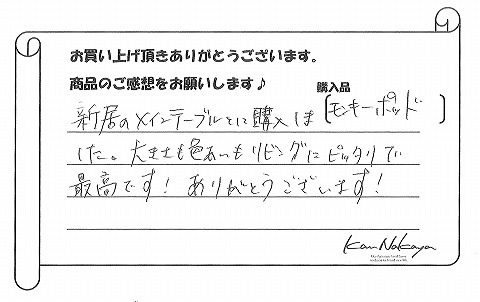 お買い上げ頂きありがとうございます。
商品のご感想をお願いします♪
購入品
[モンキーポッド]
新居のメインテーブルとして購入しま
した。大きさも色あいもリビングにピッタリで
最高です! ありがとうございます!
Kan Nakaya